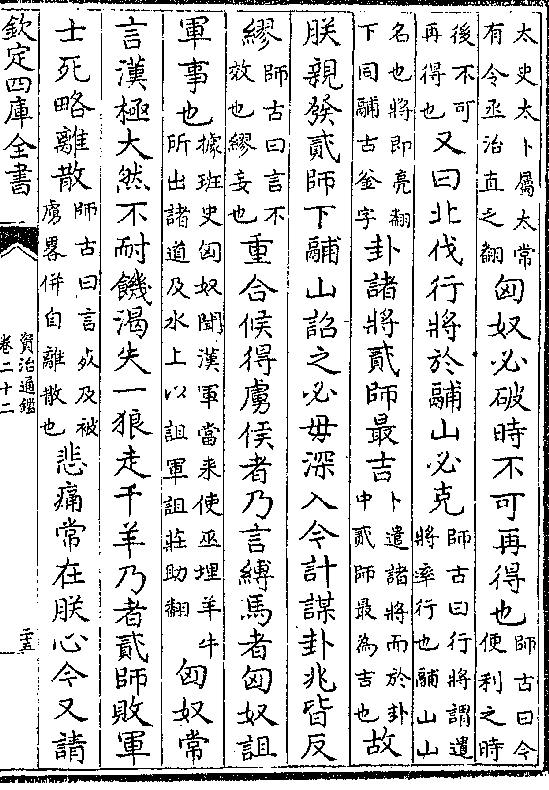 太史太卜屬太常有令丞治直之翻匈奴必破時不可再得也師古曰今便利之時
後不可再得也又曰北伐行將於鬴山必克師古曰行將謂遣將率行也鬴山山
名也將即亮翻下同鬴古釜字卦諸將貳師最吉卜遣諸將而於卦中貳師最為吉也故
朕親發貳師下鬴山詔之必毋深入今計謀卦兆皆反
繆師古曰言不效也繆妄也重合候得虜侯者乃言縛馬者匈奴詛
軍事也據班史匈奴聞漢軍當來使巫埋羊牛所出諸道及水上以詛軍詛莊助翻匈奴常
言漢極大然不耐饑渴失一狼走千羊乃者貳師敗軍
士死略離散師古曰言死及被虜畧併自離散也悲痛常在朕心今又請
欽定四庫全書
資治通鑑
卷二十二
二十五